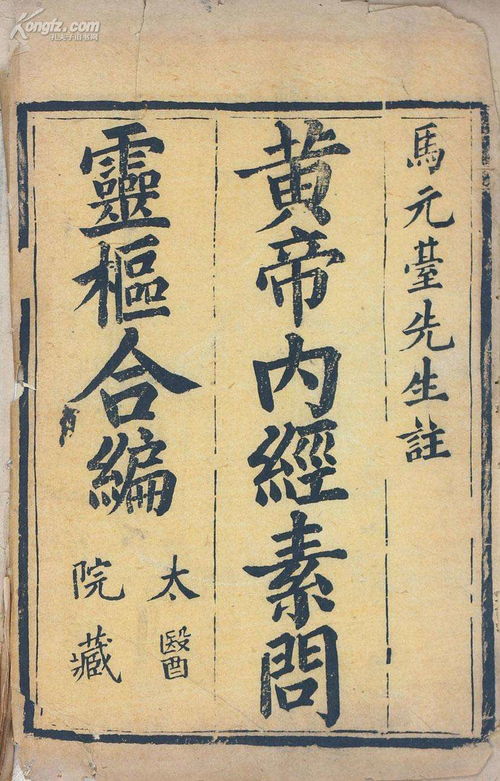 Kongfz.com
孔夫子旧书网
馬元臺先生註
黄帝内經素問
靈樞合編
太醫
院藏